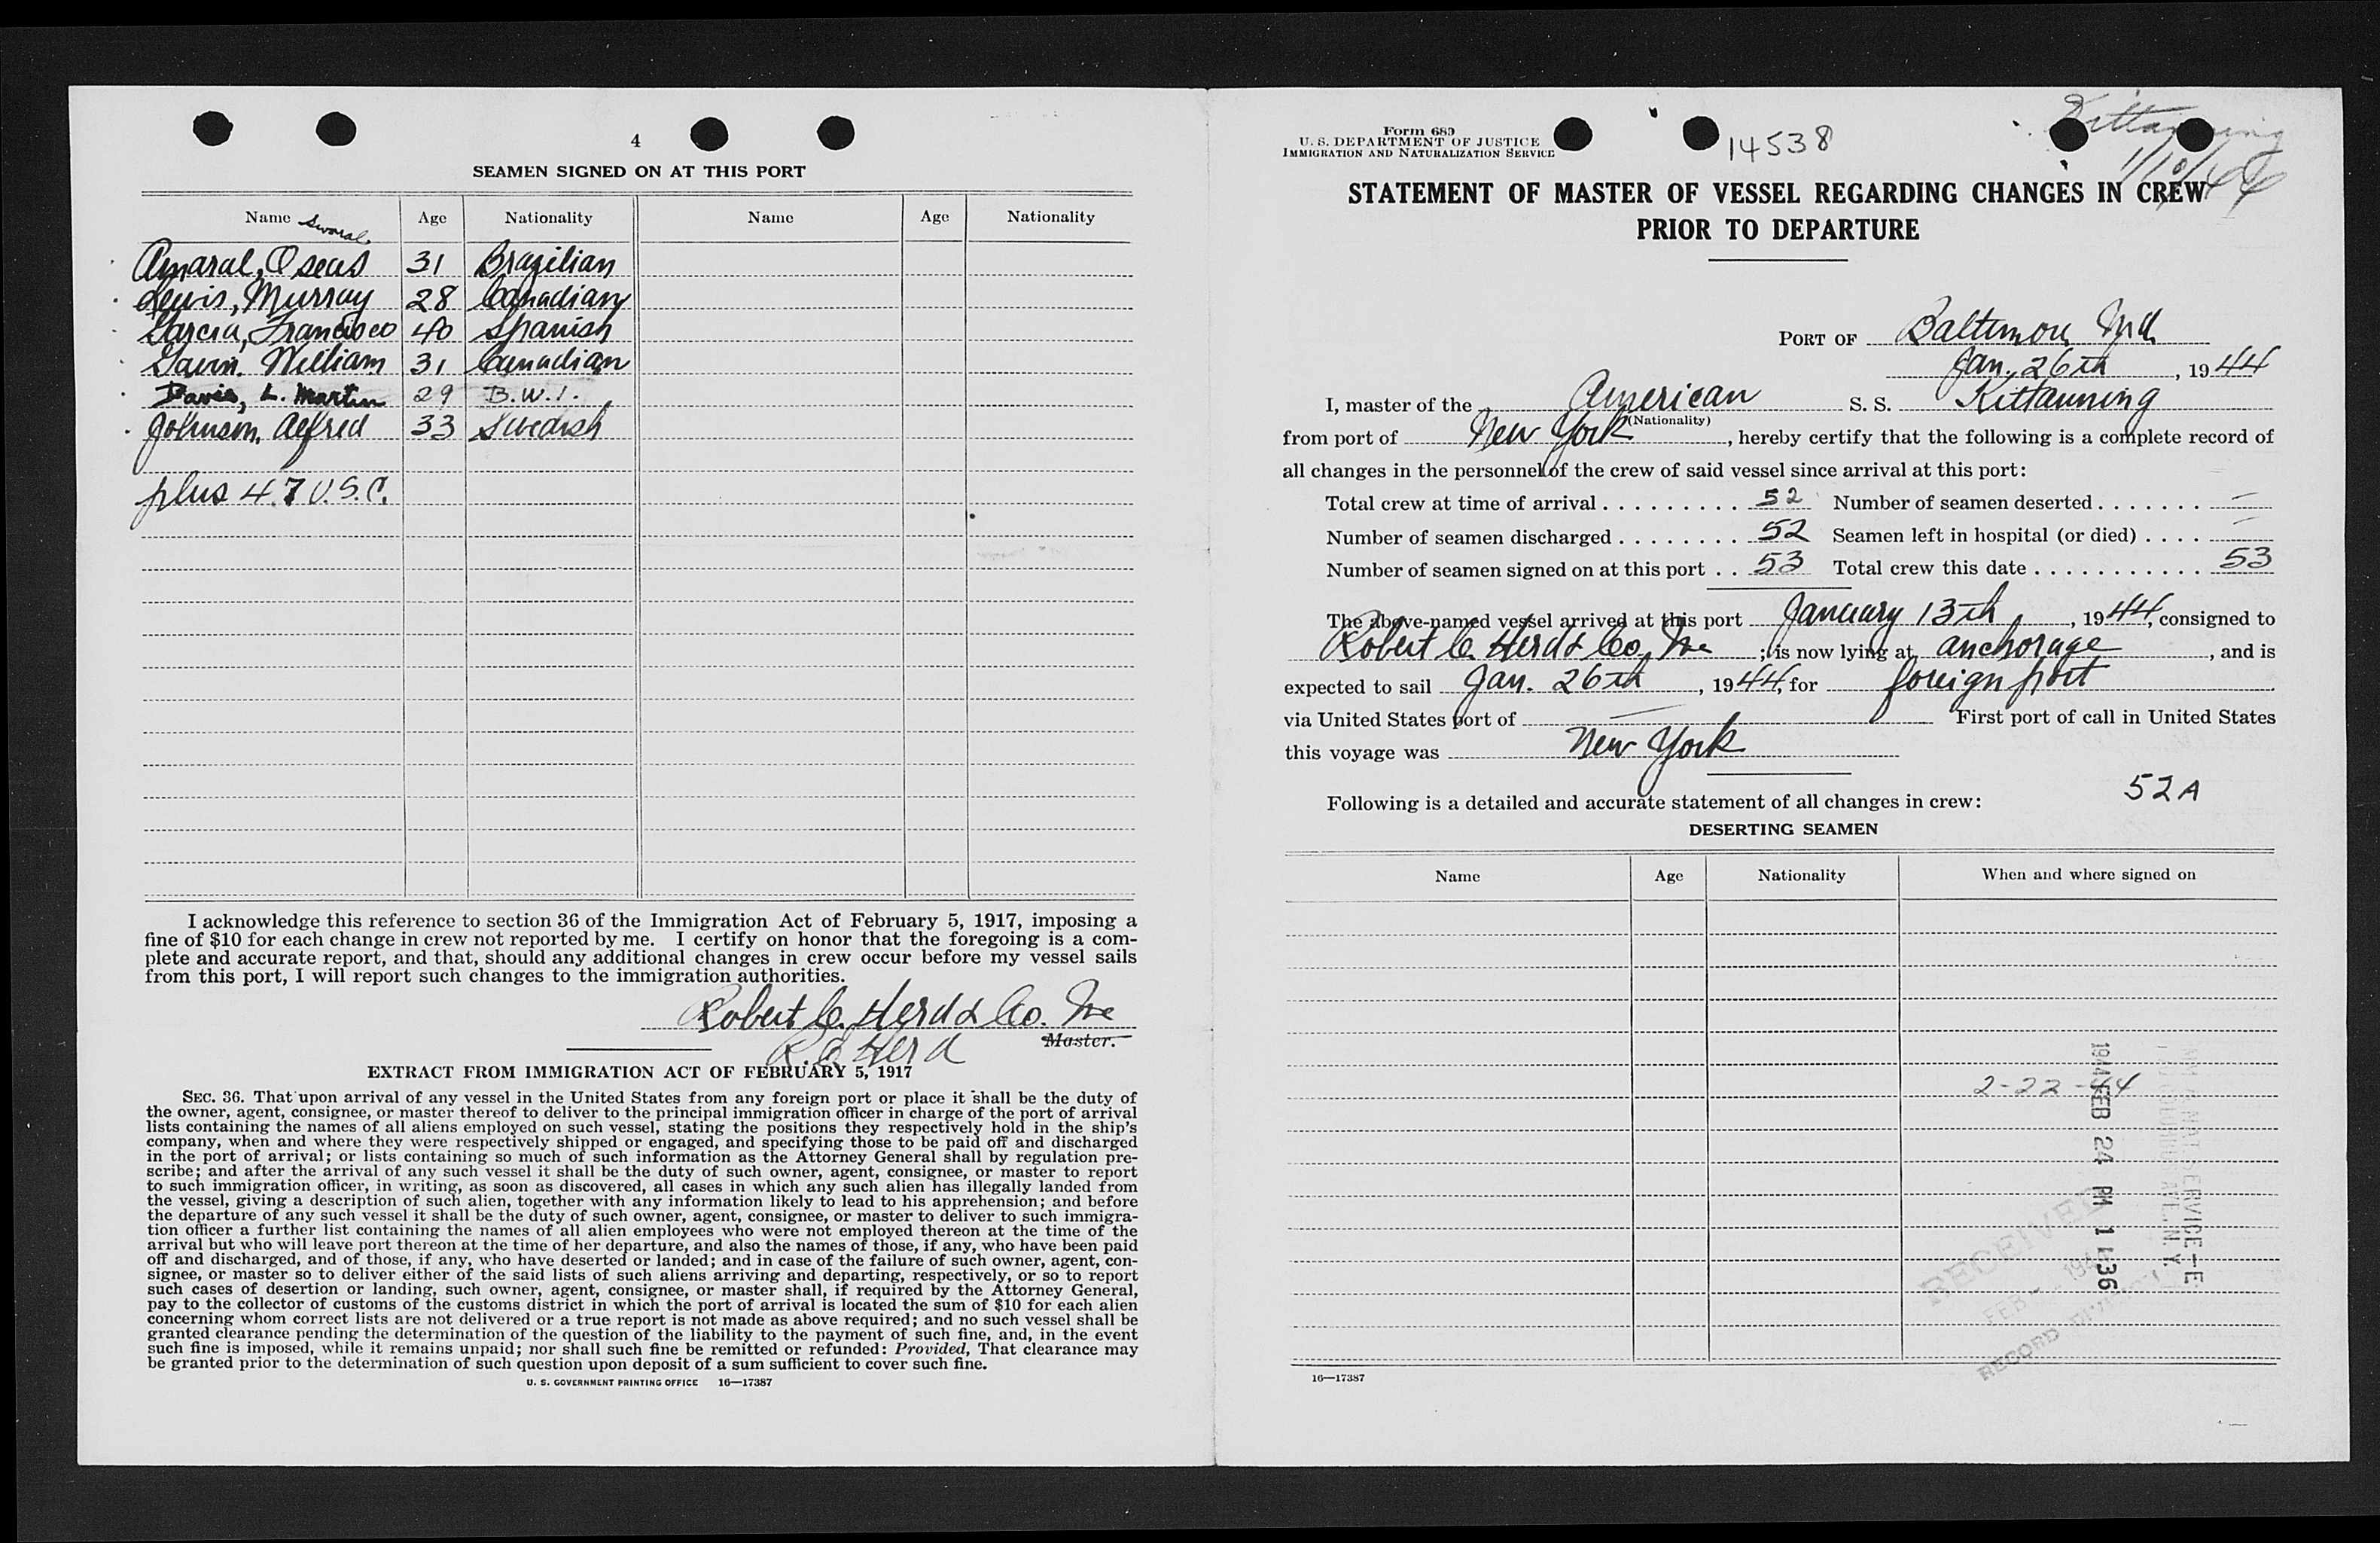 4
SEAMEN SIGNED ON AT THIS PORT
Name Age Nationality Name Age Nationality
Amaral, Oseas 31 Brazilian
Lewis, Murray 28 Canadian
Garcia, Francisco 40 Spanish
Gavin, William 31 Canadian
Davis, L. Martin 29 B.W.I.
Johnson, Alfred 33 Swedish
plus 47 U.S.C.
I acknowledge this reference to section 36 of the Immigration Act of February 5, 1917, imposing a
fine of $10 for each change in crew not reported by me. I certify on honor that the foregoing is a com-
plete and accurate report, and that, should any additional changes in crew occur before my vessel sails
from this port, I will report such changes to the immigration authorities.
Robert C. Herd & Co. Inc
R. C. Herd Master.
EXTRACT FROM IMMIGRATION ACT OF FEBRUARY 5, 1917
SEC. 36. That upon arrival of any vessel in the United States from any foreign port or place it shall be the duty of
the owner, agent, consignee, or master thereof to deliver to the principal immigration officer in charge of the port of arrival
lists containing the names of all aliens employed on such vessel, stating the positions they respectively hold in the ship's
company, when and where they were respectively shipped or engaged, and specifying those to be paid off and discharged
in the port of arrival; or lists containing so much of such information as the Attorney General shall by regulation pre-
scribe; and after the arrival of any such vessel it shall be the duty of such owner, agent, consignee, or master to report
to such immigration officer, in writing, as soon as discovered, all cases in which any such alien has illegally landed from
the vessel, giving a description of such alien, together with any information likely to lead to his apprehension; and before
the departure of any such vessel it shall be the duty of such owner, agent, consignee, or master to deliver to such immigra-
tion officer a further list containing the names of all alien employees who were not employed thereon at the time of the
arrival but who will leave port thereon at the time of her departure, and also the names of those, if any, who have been paid
off and discharged, and of those, if any, who have deserted or landed; and in case of the failure of such owner, agent, con-
signee, or master so to deliver either of the said lists of such aliens arriving and departing, respectively, or so to report
such cases of desertion or landing, such owner, agent, consignee, or master shall, if required by the Attorney General,
pay to the collector of customs of the customs district in which the port of arrival is located the sum of $10 for each alien
concerning whom correct lists are not delivered or a true report is not made as above required; and no such vessel shall be
granted clearance pending the determination of the question of the liability to the payment of such fine, and, in the event
such fine is imposed, while it remains unpaid; nor shall such fine be remitted or refunded: Provided, That clearance may
be granted prior to the determination of such question upon deposit of a sum sufficient to cover such fine.
U. S. GOVERNMENT PRINTING OFFICE 16—17387
Form 689
U. S. DEPARTMENT OF JUSTICE
IMMIGRATION AND NATURALIZATION SERVICE
14538
Kittanning
STATEMENT OF MASTER OF VESSEL REGARDING CHANGES IN CREW
PRIOR TO DEPARTURE
PORT OF Baltimore, Md.
Jan. 26th, 1944
I, master of the American S. S. Kittanning
(Nationality)
from port of New York, hereby certify that the following is a complete record of
all changes in the personnel of the crew of said vessel since arrival at this port:
Total crew at time of arrival . . . . . . . . . 52 Number of seamen deserted . . . . . . . —
Number of seamen discharged . . . . . . . . 52 Seamen left in hospital (or died) . . . . —
Number of seamen signed on at this port . . 53 Total crew this date . . . . . . . . . . . 53
The above-named vessel arrived at this port January 13th, 1944, consigned to
Robert C. Herd & Co, Inc; is now lying at anchorage, and is
expected to sail Jan. 26th, 1944, for foreign port
via United States port of — First port of call in United States
this voyage was New York
52A
Following is a detailed and accurate statement of all changes in crew:
DESERTING SEAMEN
Name Age Nationality When and where signed on
2-22-44
1944 FEB 24 PM 1 36
RECEIVED
RECORD DIVISION
16—17387